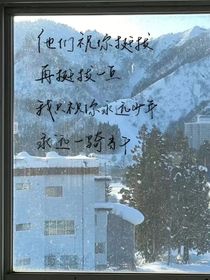 他们祝你挺拔
再挺拔一点
我只祝你永远少年
永远一骑当千